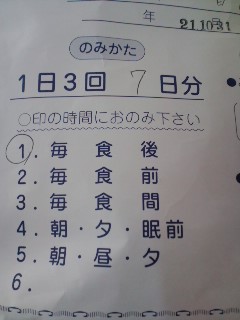 年 21.10.31
のみかた
1日3回 7 日分
○印の時間におのみ下さい
1. 毎食後
2. 毎食前
3. 毎食間
4. 朝・夕・眠前
5. 朝・昼・夕
6.